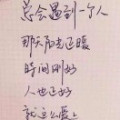 总会遇到一个人
那天阳光暖
时间刚好
人也还好
就这么爱上